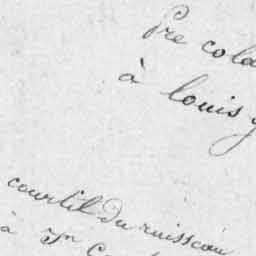 Pre cola
à louis
courtil du ruisseau
à Jn